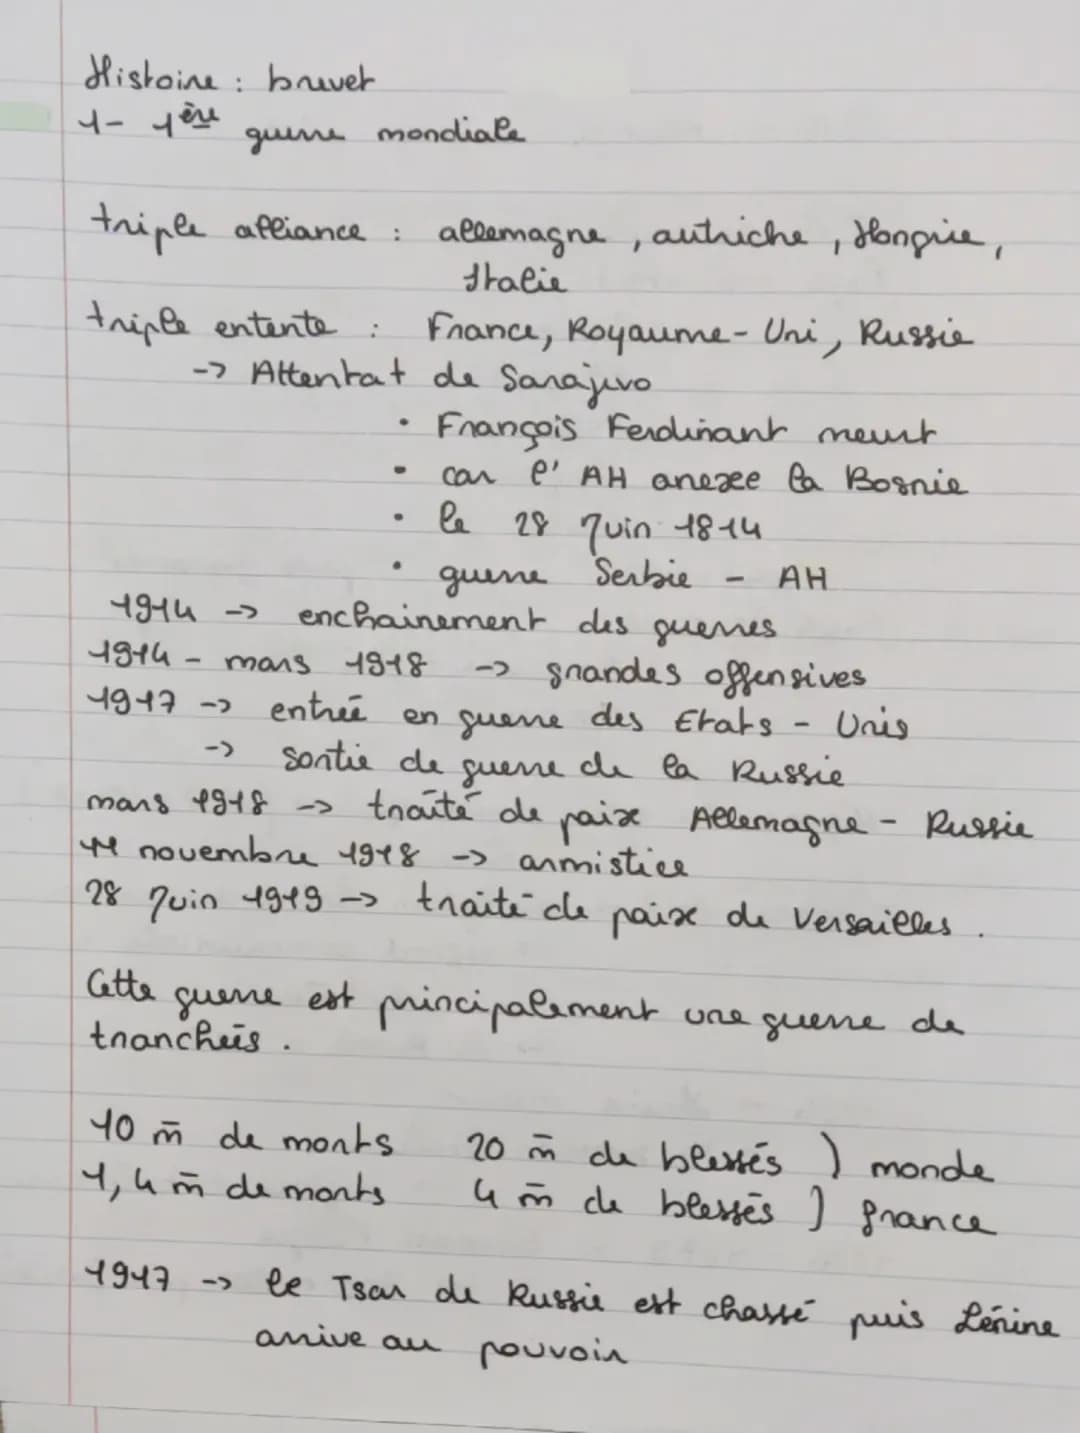 Histoire : brevet
1- 1ère guerre mondiale
triple alliance : allemagne, autriche, Hongrie,
Italie
triple entente : France, Royaume-Uni, Russie
-> Attentat de Sarajevo
• François Ferdinant meurt
• car l'AH anexee la Bosnie
• le 28 Juin 1814
• guerre Serbie - AH
1914 -> enchainement des guerres
1914 - mars 1918 -> grandes offensives
1917 -> entrée en guerre des Etats-Unis
-> sortie de guerre de la Russie
mars 1918 -> traité de paix Allemagne - Russie
11 novembre 1918 -> armistice
28 Juin 1919 -> traité de paix de Versailles.
Cette guerre est principalement une guerre de
tranchées.
10 m̄ de morts 20 m̄ de blessés ) monde
1,4 m̄ de morts 4 m̄ de blessés ) france
1917 -> le Tsar de Russie est chassé puis Lénine
arrive au pouvoir